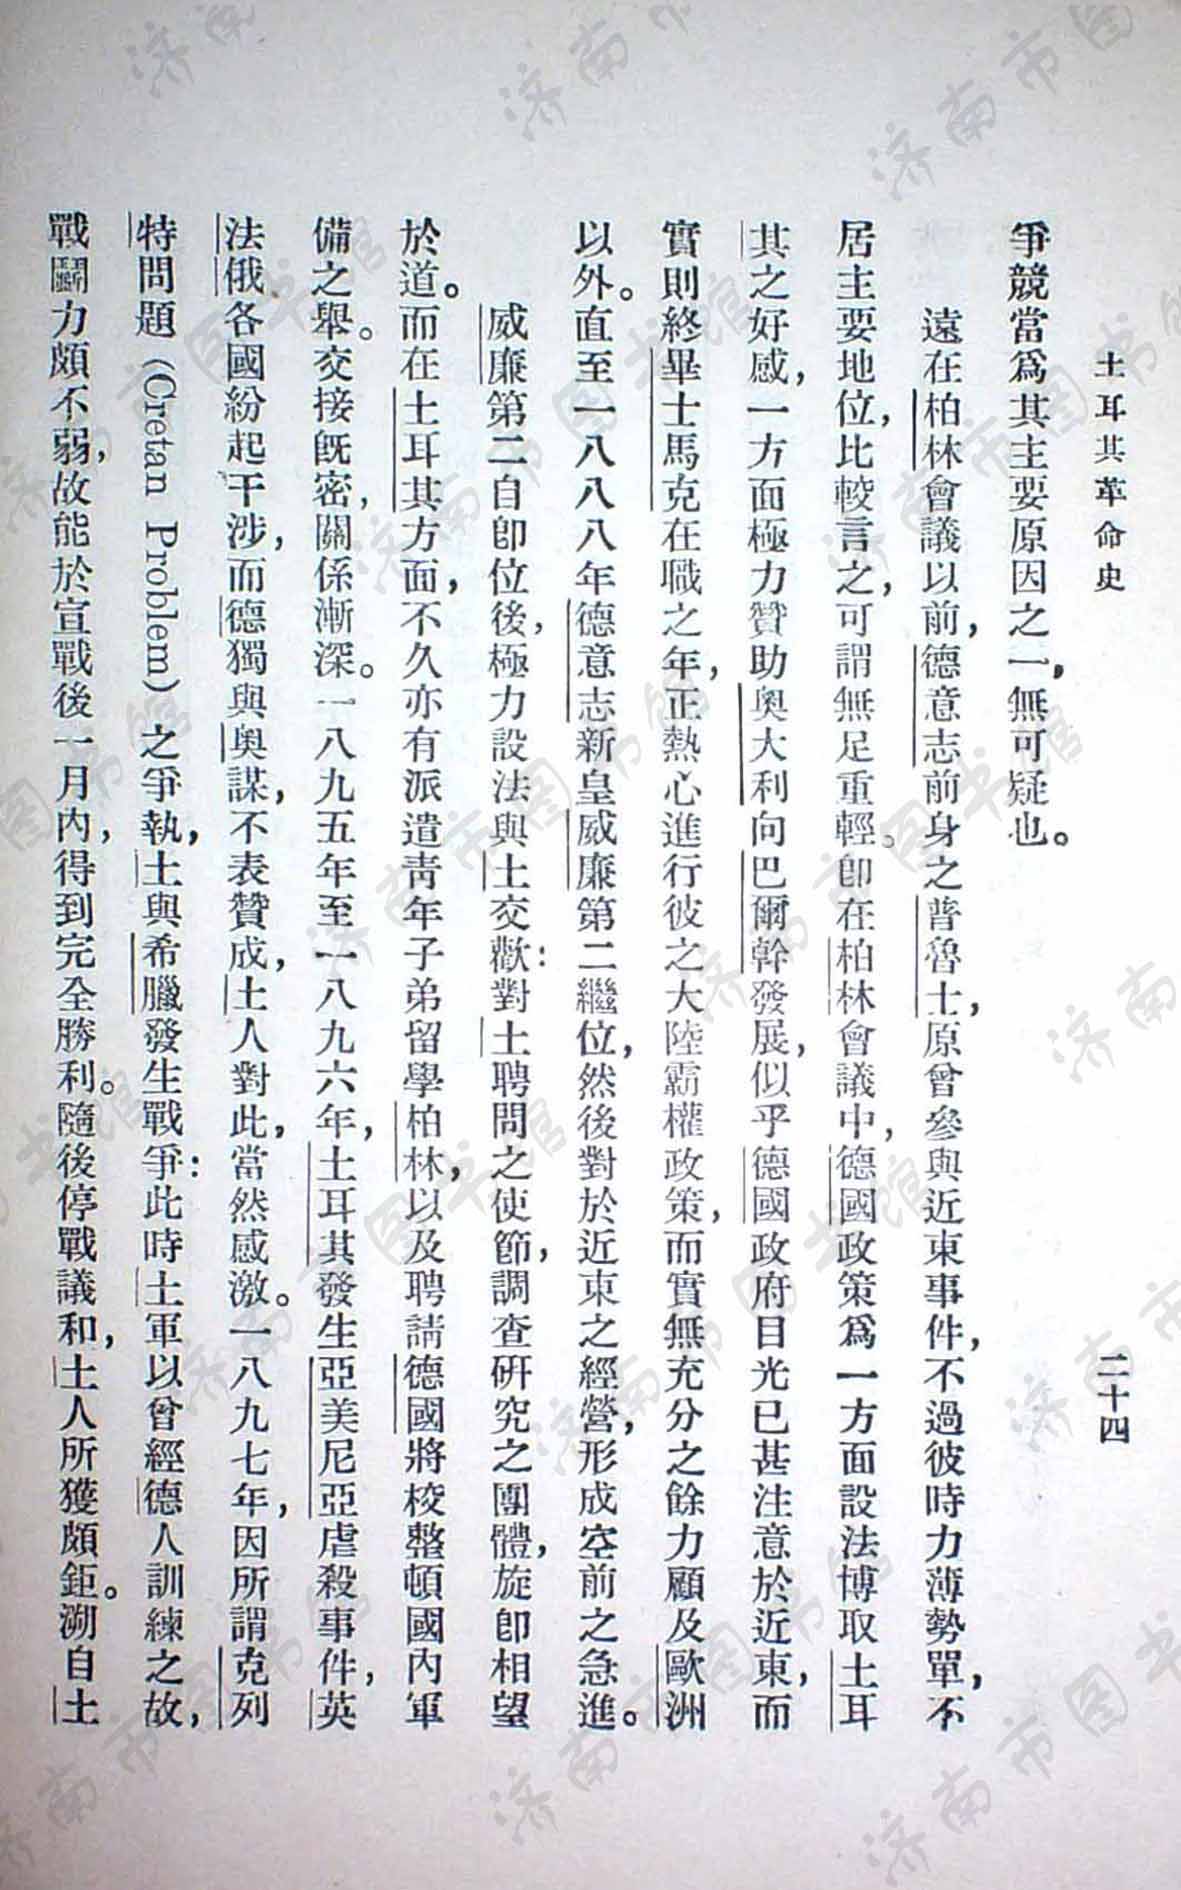 土耳其革命史
二十四
爭競當爲其主要原因之一，無可疑也。
遠在柏林會議以前，德意志前身之普魯士，原曾參與近東事件，不過彼時力薄勢單，不
居主要地位，比較言之，可謂無足重輕。卽在柏林會議中，德國政策爲一方面設法博取土耳
其之好感，一方面極力贊助奧大利向巴爾幹發展，似乎德國政府目光已甚注意於近東，而
實則終畢士馬克在職之年，正熱心進行彼之大陸霸權政策，而實無充分之餘力顧及歐洲
以外。直至一八八八年德意志新皇威廉第二繼位，然後對於近東之經營，形成空前之急進。
威廉第二自卽位後，極力設法與土交歡：對土聘問之使節，調查研究之團體，旋卽相望
於道。而在土耳其方面，不久亦有派遣靑年子弟留學柏林，以及聘請德國將校整頓國內軍
備之舉。交接旣密，關係漸深。一八九五年至一八九六年，土耳其發生亞美尼亞虐殺事件，英
法俄各國紛起干涉，而德獨與奧謀，不表贊成，土人對此，當然感激。一八九七年，因所謂克列
特問題（Cretan Problem）之爭執，土與希臘發生戰爭：此時土軍以曾經德人訓練之故，
戰鬭力頗不弱，故能於宣戰後一月內，得到完全勝利。隨後停戰議和，土人所獲頗鉅。溯自土
济南市图书馆
济南市图书馆
济南市图书馆